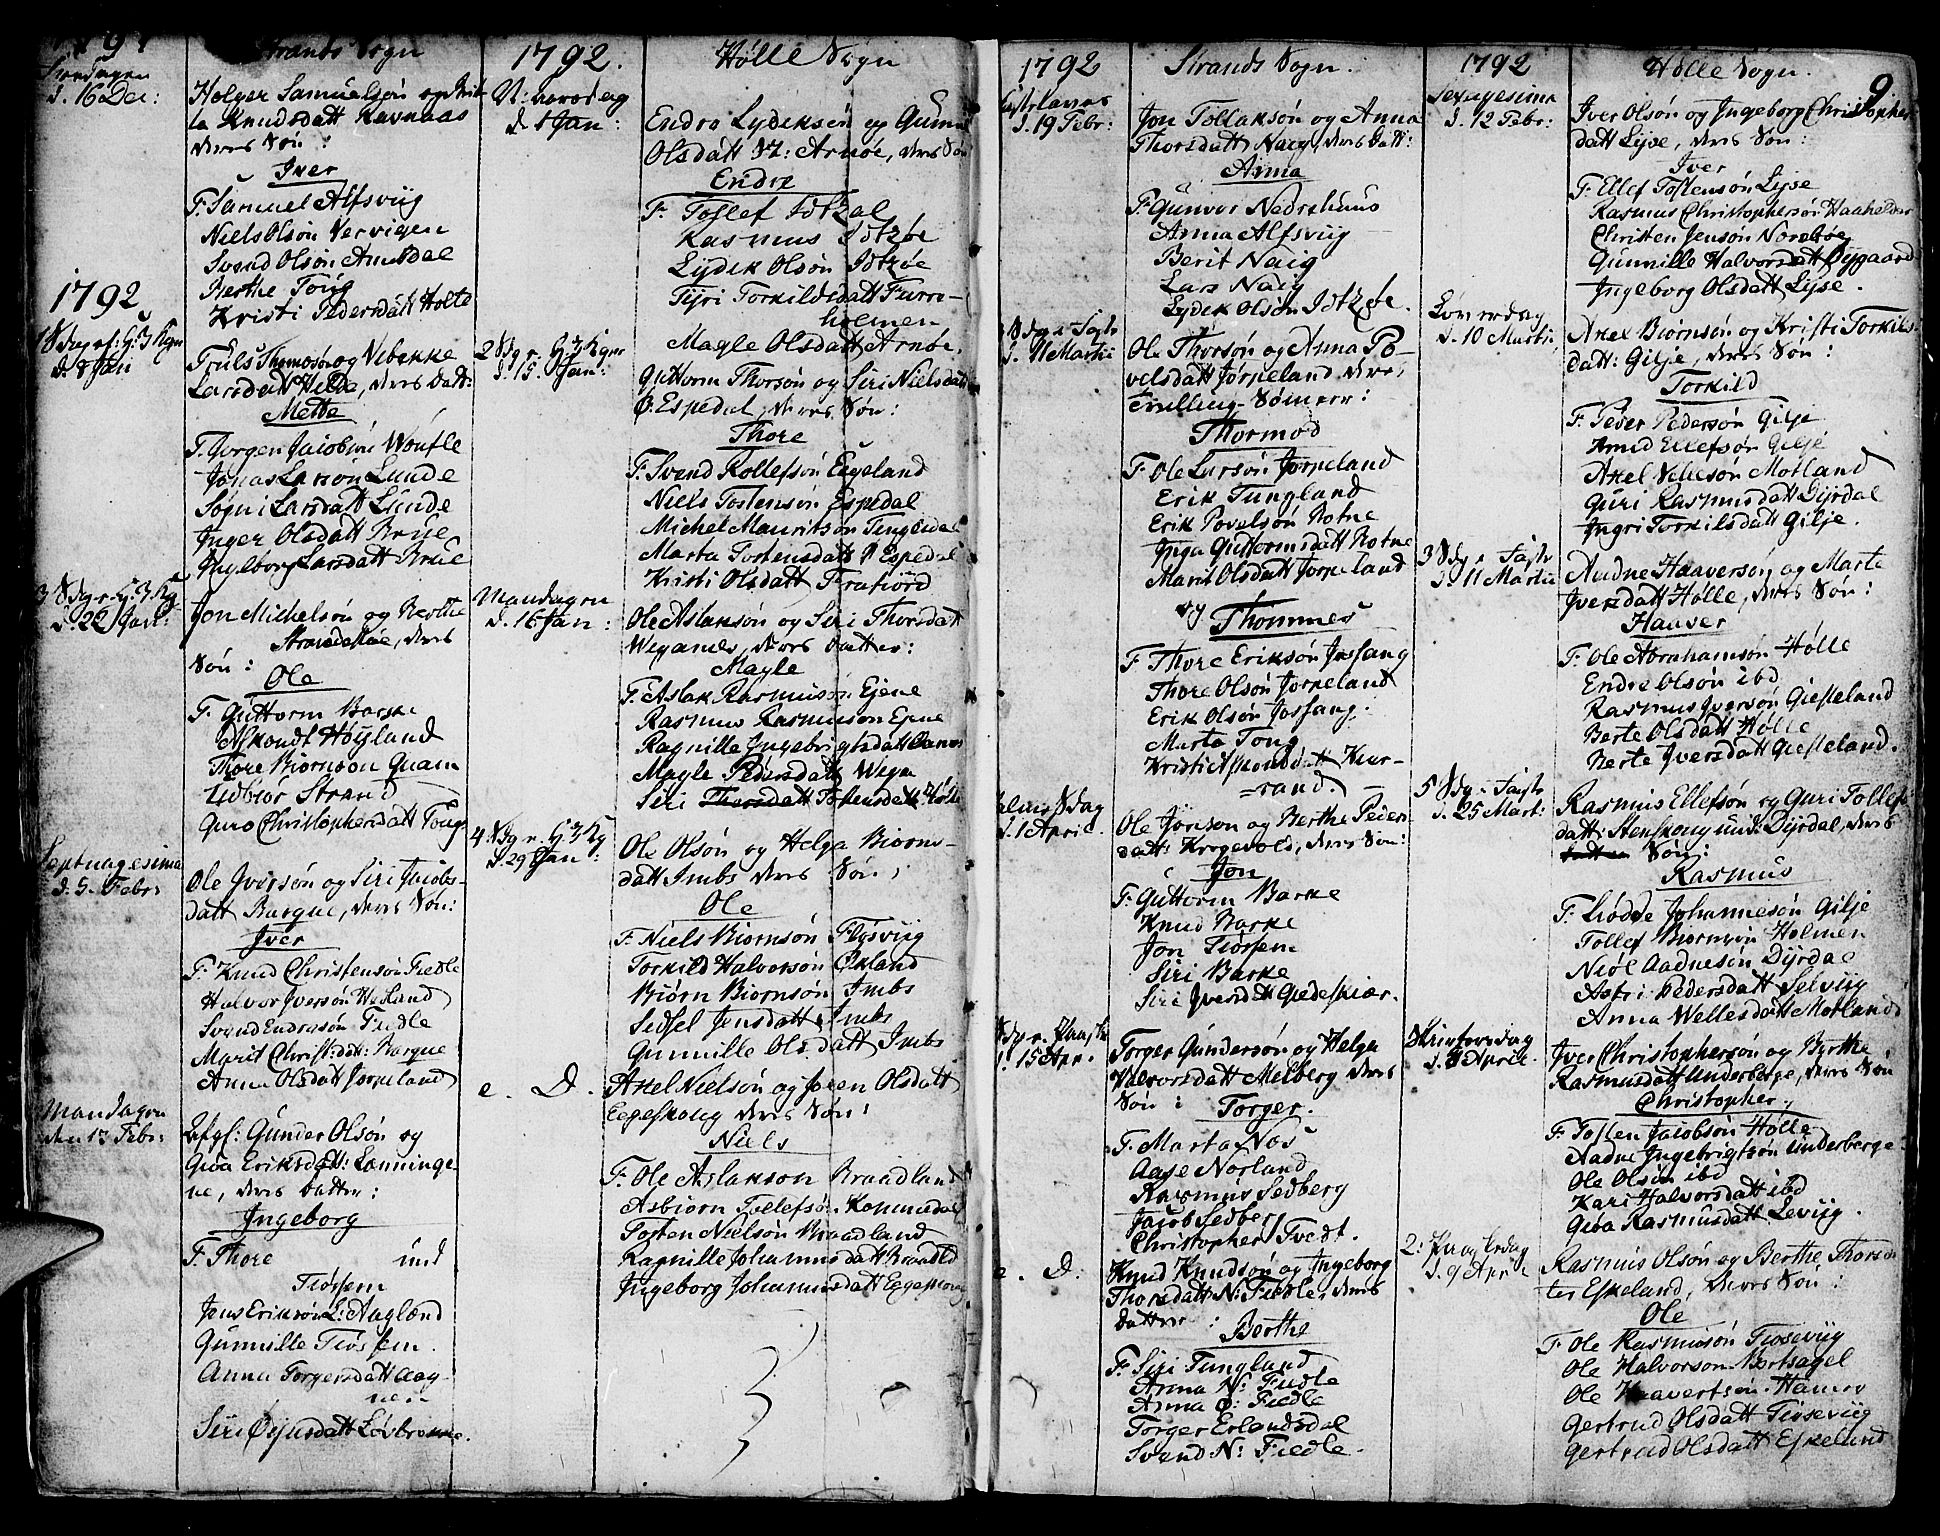 Strands Sogn
d. 16 Dec:
Holger Samuelsøn og Brit-
ta Knudsdatt Ravnaas
deres Søn:
Iver
F. Samuel Alfsviig
Niels Olsøn Vervigen
Svend Olsøn Amdal
Berthe Tong
Kristi Pedersdatt Holte
1792
d. 8 Jan
Truls Thomesøn og Vibekke
Larsdatt Helde, deres Datt:
Mette
F. Jørgen Jacobsøn
Jonas Larsøn Lunde
Søgni Larsdatt Lunde
Inger Olsdatt Brue
Ingborg Larsdatt Brue
d. 22 Jan:
Jon Michelsøn og Berthe
deres
Søn:
Ole
F. Guttorm Barke
Askondt Høysland
Thore Biørnson Quam
Udbior Strand
Guro Christophersdatt Tong
Septuagesima
d. 5. Febr:
Ole Iversøn og Siri Jacobs-
datt Barque, deres Søn:
Iver
F. Knud Christensøn Fiedle
Halvor Iversøn Heiland
Svend Endresøn Fiedle
Marit Christ:datt: Barque
Anna Olsdatt Jørpeland
Mandagen
den 13 Febr:
Gunder Olsøn og
Giøa Eriksdatt: Lønninge-
ne, deres Datter:
Ingeborg
F. Thore
Tiøstem
Jens Eriksøn L: Aagland
Gunnille Tiøstem.
Anna Torgersdatt Aag-
ne.
Siri Øyusdatt
1792.
Hølle Sogn
d. 1 Jan:
Endre Lydeksøn og Gunni
Olsdatt St: Arnøe, deres Søn
Endre
F. Toslef Idtzal
Rasmus Idtzøe
Lydek Olsøn Idtzøe
Tyri Torkildsdatt Furre-
holmen
Magle Olsdatt Arnøe.
d. 15. Jan:
Guttorm Thorsøn og Siri Nielsdatt
Ø. Espedal, deres Søn:
Thore
F. Svend Rollefsøn Eigeland
Niels Tostensøn Espedal
Michel Mauritsøn Tengesdal
Marta Tostensdatt Espedal
Kristi Olsdatt Frafiord
Mandagen
d. 16 Jan:
Ole Aslaksøn og Siri Thorsdatt
Weganes, deres Datter:
Magle
F. Aslak Rasmusøn Ejene
Rasmus Rasmuson Ejene
Ragnille Ingebrigtsdatt
Magle Pedersdatt Wega
Siri Tostensdatt Hølle
d. 29 Jan:
Ole Olsøn og Helga Biørns-
datt Imbs deres Søn:
Ole
F. Niels Biørnsøn Fløsviig
Torkild Halvorsøn Økland
Biørn Biørnsøn Imbs
Sidsel Jensdatt Imbs
Gunnille Olsdatt Imbs
e. D.
Axel Nielsøn og Joren Olsdatt
Eegeskoug deres Søn:
Niels
F. Ole Aslakson Braadland
Asbiørn Tollefsøn
Tosten Nielsøn Braadland
Ragnille Johannesdatt Braadld
Ingeborg Johannesdatt Eegeskoug
1792
Strands Sogn.
d. 19 Febr:
Jon Tollaksøn og Anna
Thorsdatt Naig, deres Datt:
Anna
F. Gunvor Nedrehuus
Anna Alfsviig
Berit Naig
Lars Naig
Lydek Olsøn Idtzøe.
d. 11 Martii
Ole Thorsøn og Anna Po-
velsdatt Jørpeland deres
Tvilling-Sønner:
Thormod
F. Ole Larsøn Jørpeland
Erik Tungland
Erik Povelsøn Botne
Inga Guttormsdatt Botne
Marit Olsdatt Jørpeland
og Thommes
F. Thore Eriksøn Jøssang
Thore Olsøn Jørpeland
Erik Olsøn Jøssang.
Marta Tong
Kristi Askondsdatt Kur-
rand.
d. 1 April.
Ole Jonson og Berthe Peder-
datt: Krogevold, deres Søn:
Jon
F. Guttorm Barke
Knud Barke
Jon Tiøstem
Siri Barke
Siri Iversdatt Giedeskiær.
d. 15 Apr.
Torger Gundersøn og Helga
Halvorsdatt Melberg deres
Søn:
Torger.
F. Marta Nøs
Aase Norland
Rasmus Sedberg
Jacob Sedberg
Christopher Tvedt.
e. D.
Knud Knudsøn og Ingeborg
Thorsdatt N: Fiedle, deres
Datter:
Berthe
F. Siri Tungland
Anna N: Fiedle
Anna Ø: Fiedle
Torger Erlandsdal
Svend N: Fiedle.
1792
Hølle Sogn.
9
Sexagesima
d. 12 Febr:
Iver Olsøn og Ingeborg Christopher
datt Lyse, deres Søn:
Iver
F. Ellef Tostensøn Lyse
Rasmus Christophersøn Haahelder
Christen Jensøn Norebøe
Gunnille Halvorsdatt Øygaard
Ingeborg Olsdatt Lyse.
Løverdag
d. 10 Martii
Axel Biørnsøn og Kristi Torkils-
datt: Gilje, deres Søn:
Torkild
F. Peder Pedersøn Gilje
Amd Ellefsøn Gilje
Axel Vellesøn Motland
Guri Rasmusdatt Dyrdal
Ingri Torkilsdatt Gilje.
3 Sdg i Faste
d. 11 Martii
Audne Haaversøn og Marte
Iversdatt Hølle, deres Søn:
Haaver
F. Ole Abrahamsøn Hølle
Endre Olsøn ibd
Rasmus Iversøn Giesteland
Berte Olsdatt Hølle
Berte Iversdatt Giesteland.
5 Sdg i Faste
d. 25 Mart:
Rasmus Ellefsøn og Guri Tollefs
datt: Stenskoug und: Dyrdal, deres
Søn:
Rasmus
F. Lodde Johannesøn Gilje
Tollef Biørnsøn Holmen
Niøl Aadnesøn Dyrdal
Astri Pedersdatt Selviig
Anna Wellesdatt Motland
Skiertorsdag
April
Iver Christophersøn og Byrthe
Rasmusdatt Underberge, deres Søn
Christopher.
F. Tosten Jacobsøn Hølle
Aadne Ingebrigtsøn Underberge
Ole Olsøn ibd
Kari Halvorsdatt ibd
Giøa Rasmusdatt Leviig.
2: Paaskedag
d. 9 April
Rasmus Olsøn og Berthe Thorsda
ter Eskeland, deres Søn:
Ole
F. Ole Rasmusøn Tioseviig
Ole Halvorson Bertsagel
Ole Haavertsøn Hamre
Gertrud Olsdatt Tioseviig
Gertrud Olsdatt Eskeland